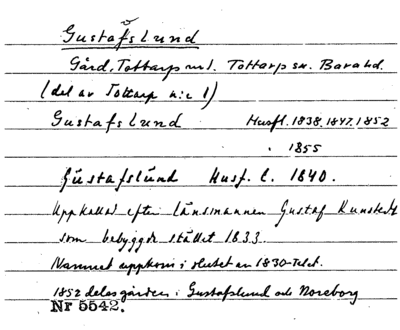 Gustafslund
Gård, Tottarp nr 1. Tottarp sn. Bara hd.
(del av Tottarp n:r 1)
Gustafslund Husfl. 1838, 1847, 1852
" 1855
Gustafslund Husf. l. 1840.
Uppkallad efter länsmannen Gustaf Kunstedt
som bebyggde stället 1833.
Namnet uppkom i slutet av 1830-talet.
1852 delas gården i Gustafslund och Noreborg
Nr 5542.